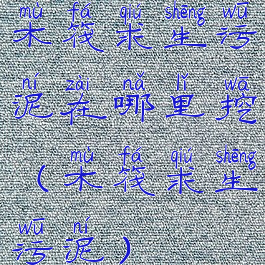 mù fá qiú shēng wū
木筏求生污
ní zài nǎ lǐ wā
泥在哪里挖
mù fá qiú shēng
（木筏求生
wū ní
污泥）